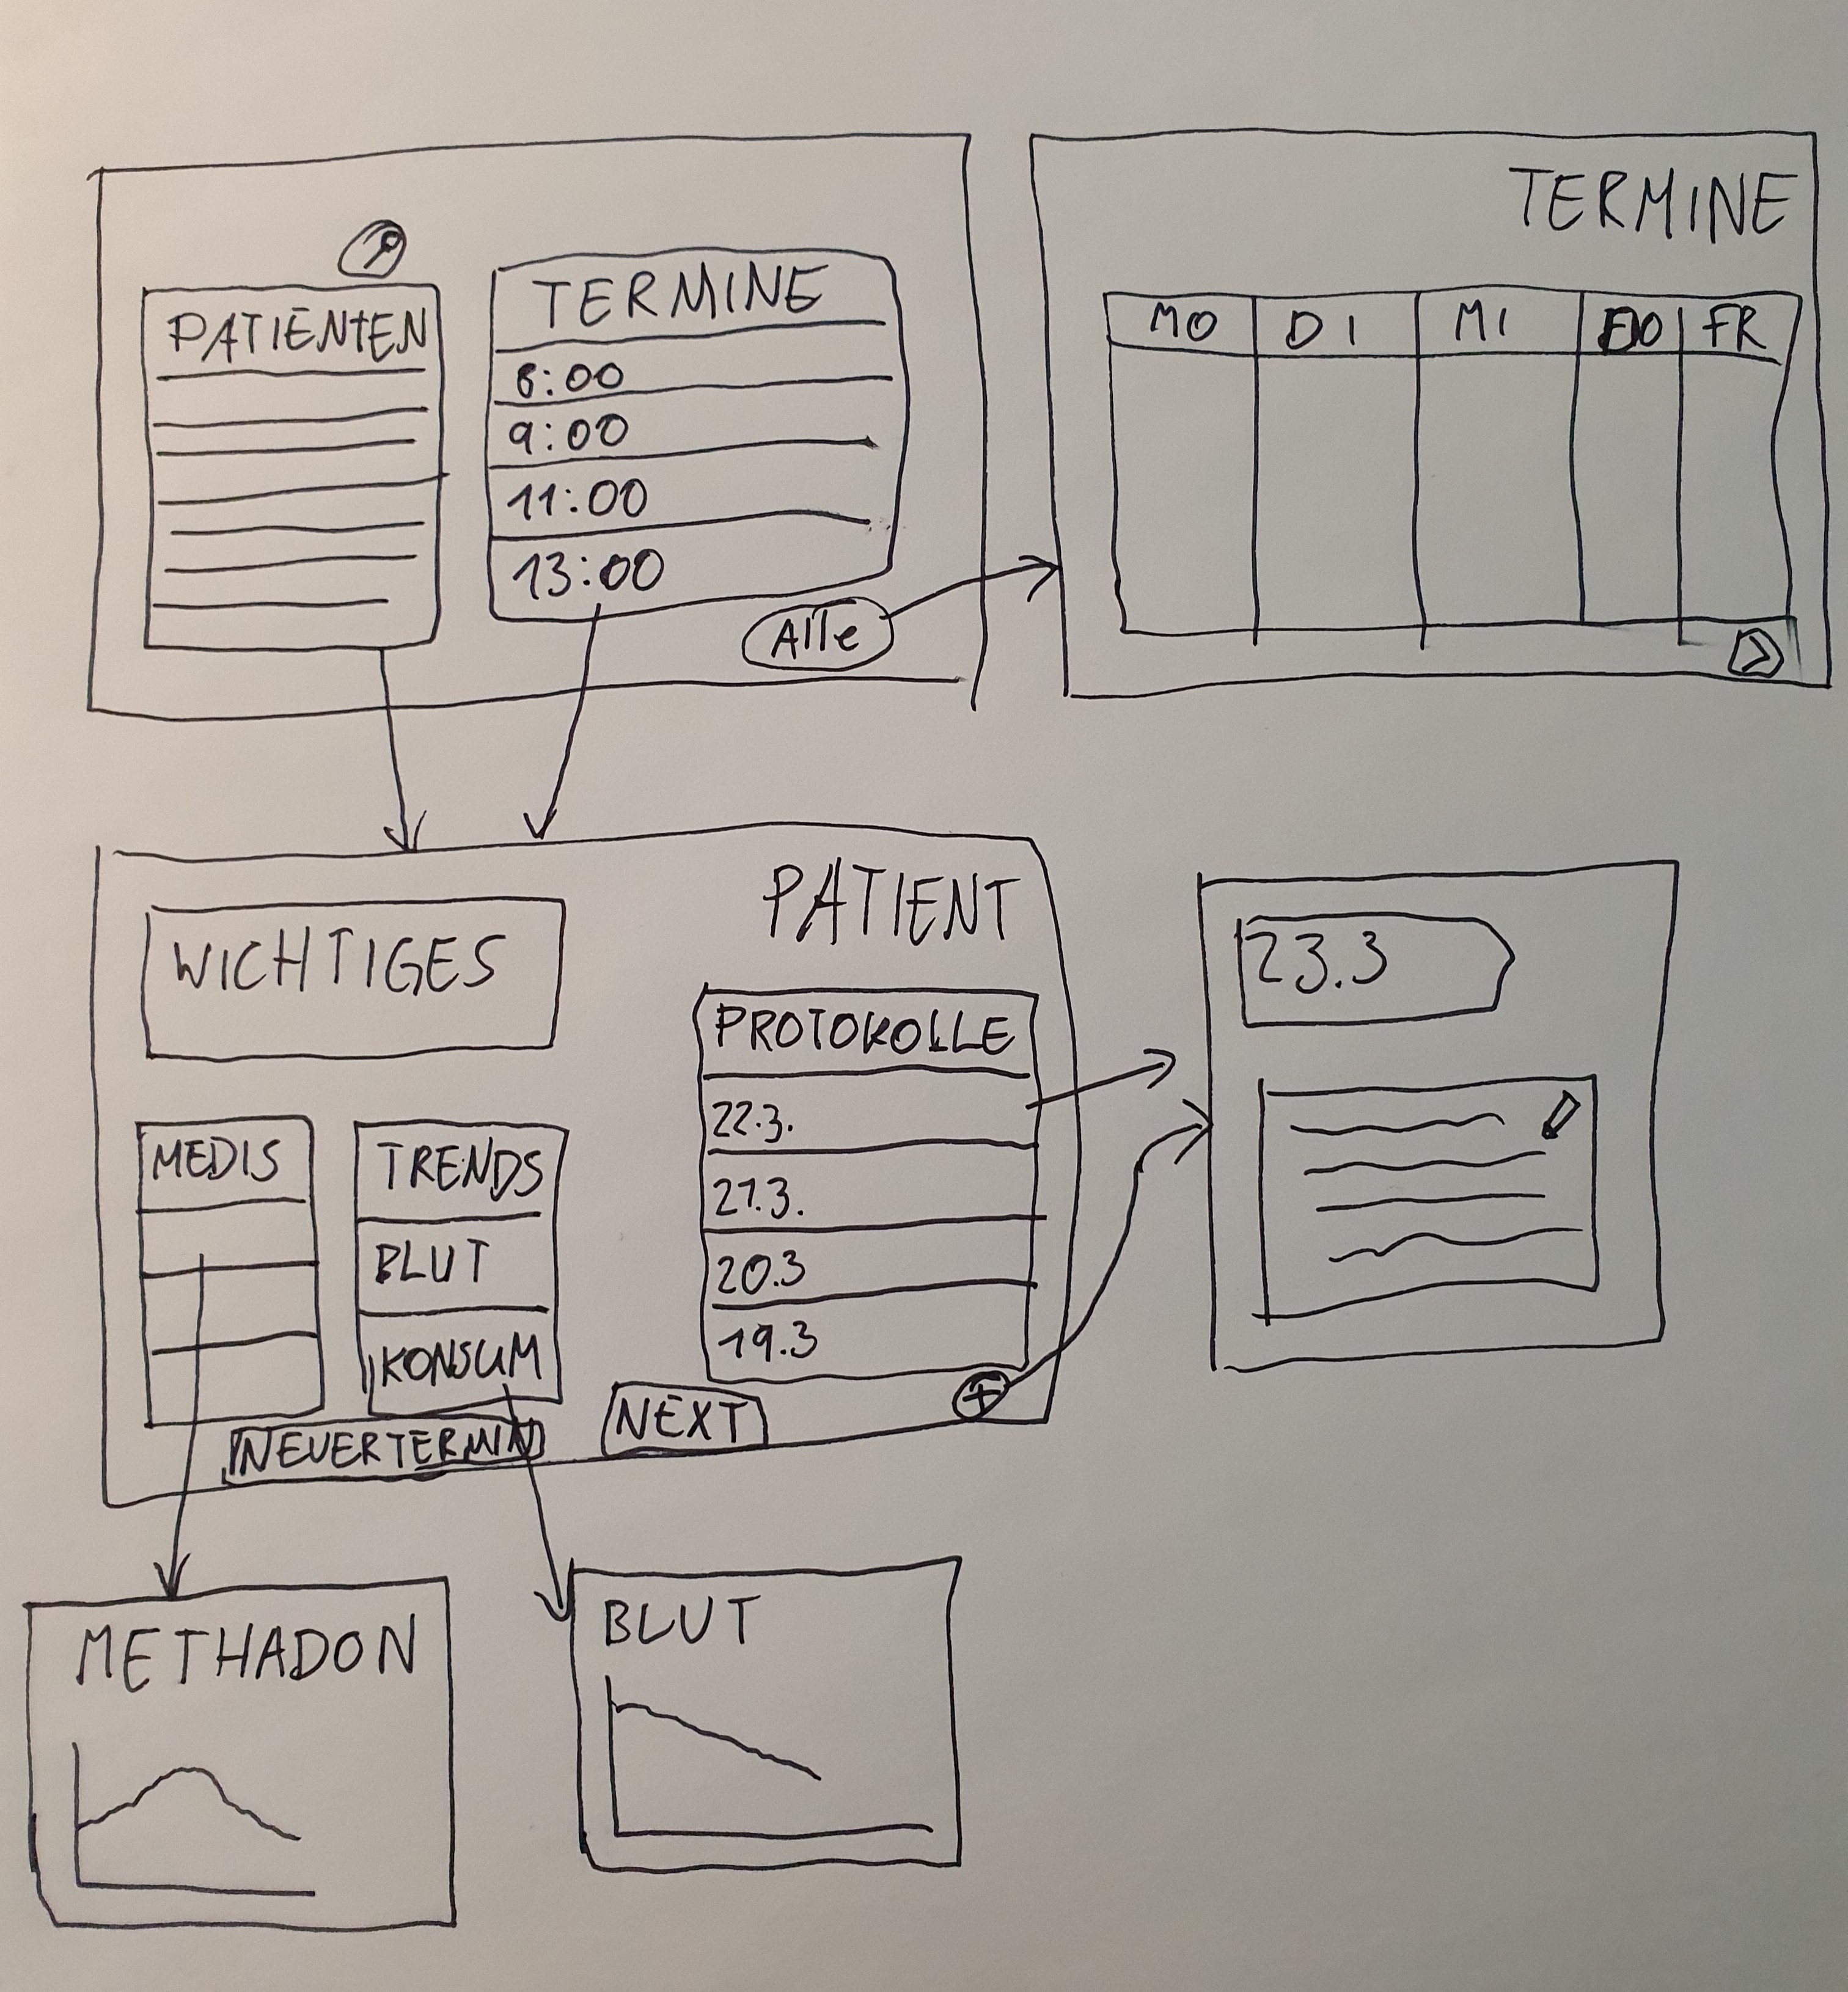 PATIENTEN
TERMINE
8:00
9:00
11:00
13:00
Alle
TERMINE
MO DI MI DO FR
PATIENT
WICHTIGES
MEDIS
TRENDS
BLUT
KONSUM
PROTOKOLLE
22.3.
21.3.
20.3
19.3
NEUER TERMIN
NEXT
23.3
METHADON
BLUT